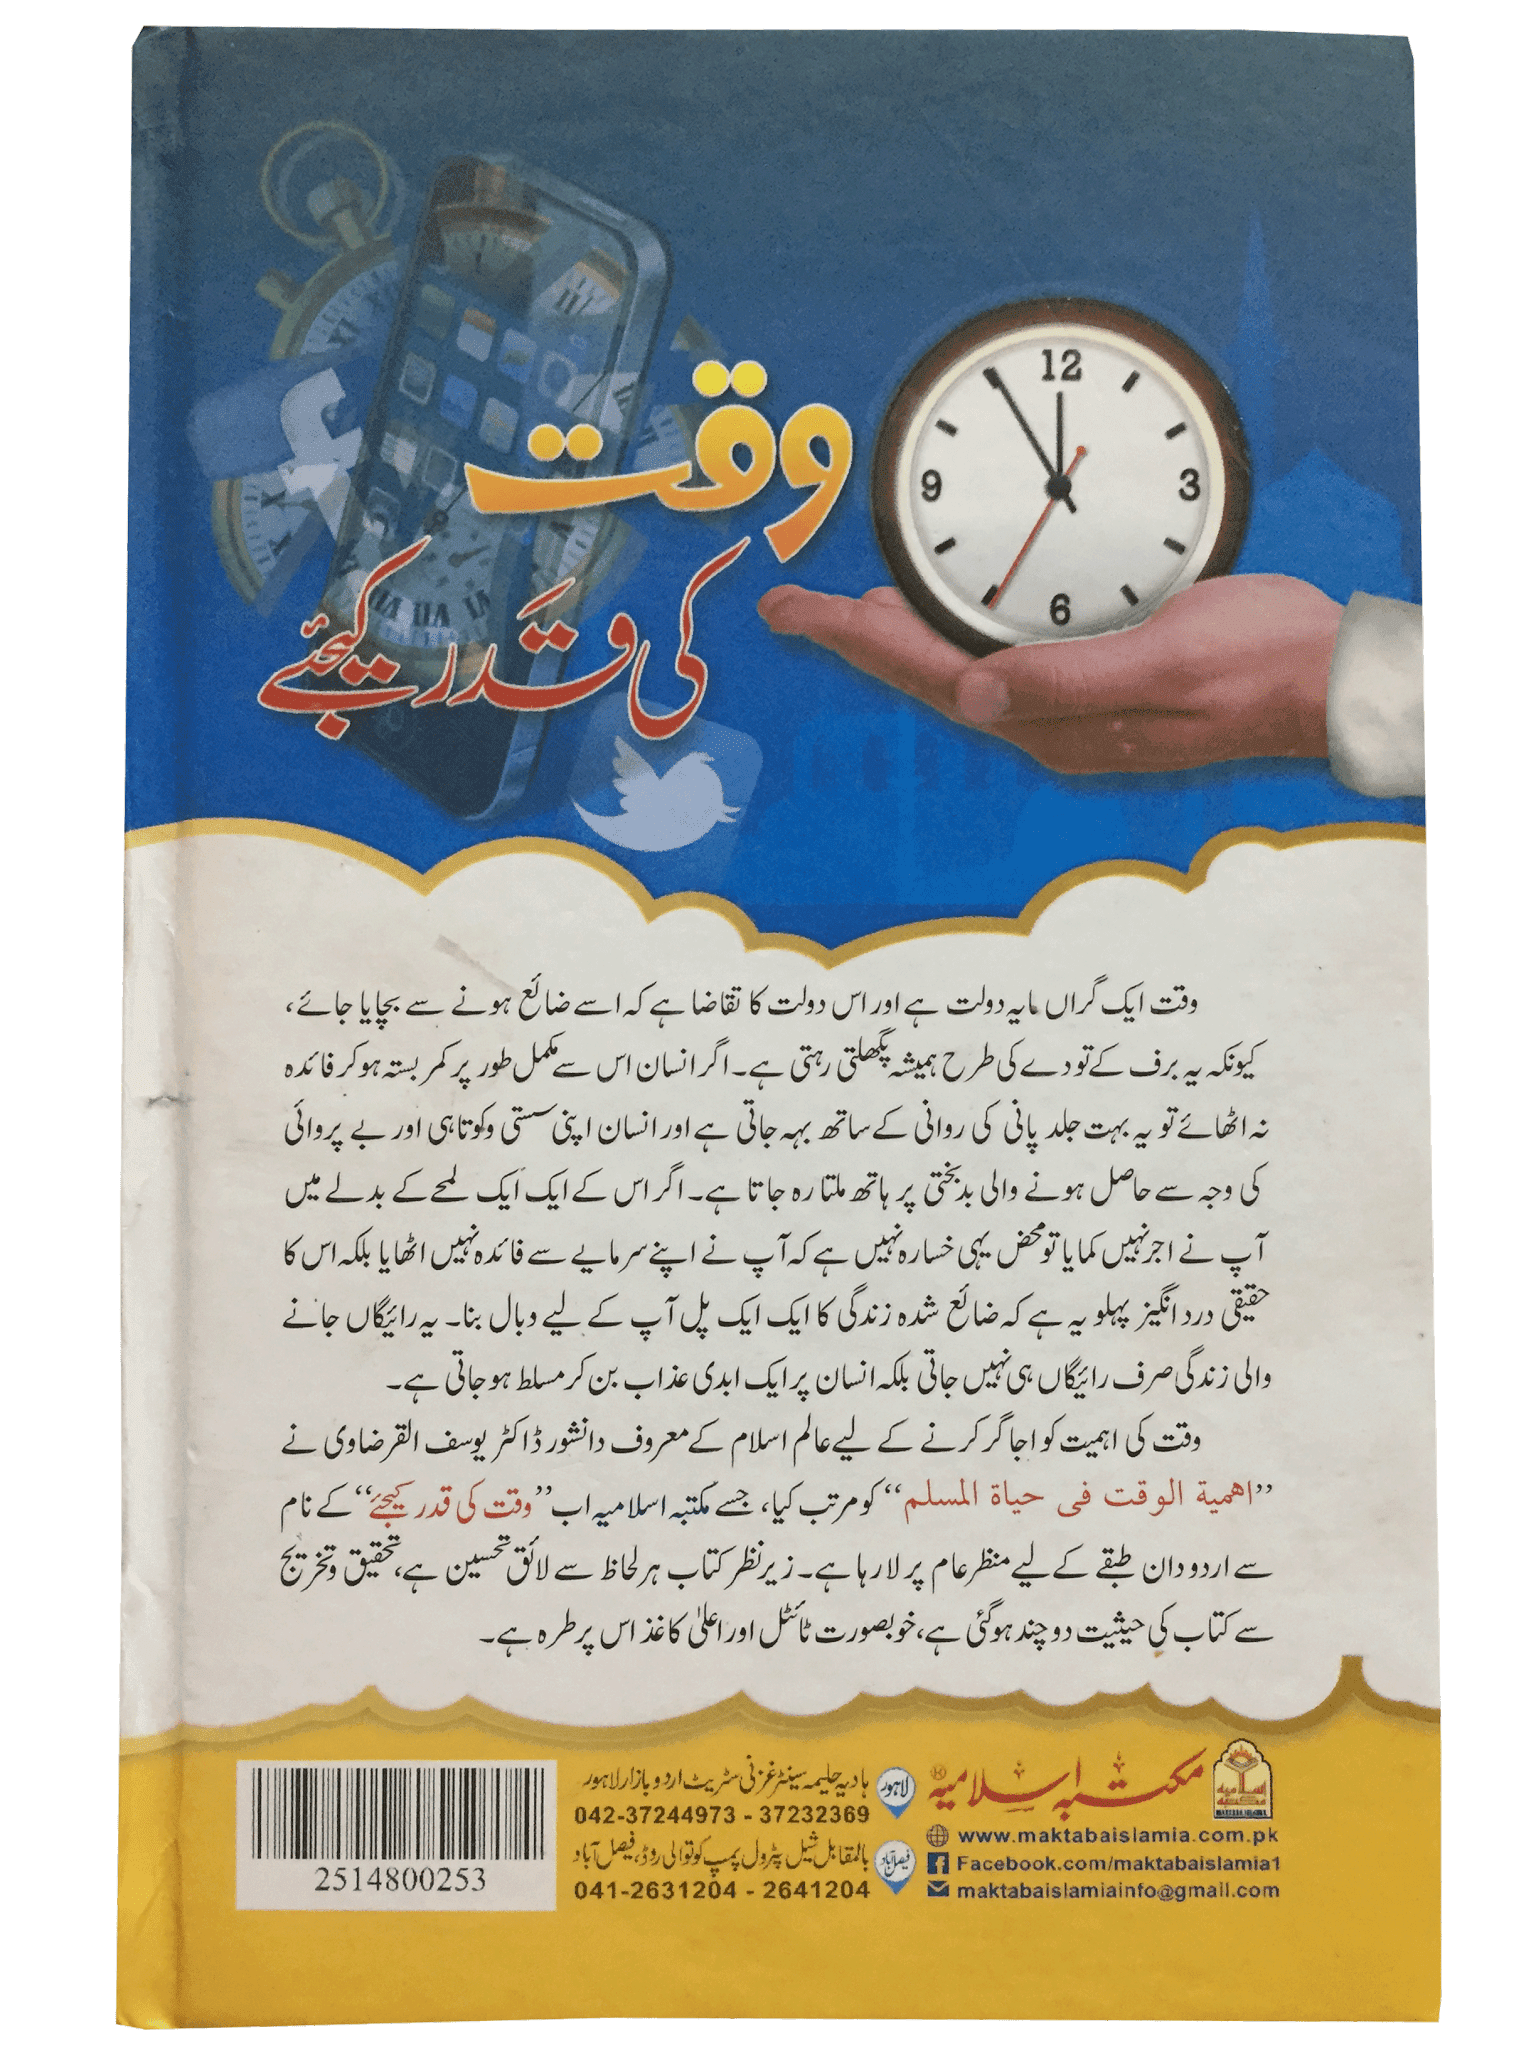 وقت
کی قدر کیجئے
12
3
6
9
وقت ایک گراں مایہ دولت ہے اور اس دولت کا تقاضا ہے کہ اسے ضائع ہونے سے بچایا جائے،
کیونکہ یہ برف کے تودے کی طرح ہمیشہ پگھلتی رہتی ہے۔ اگر انسان اس سے مکمل طور پر کمر بستہ ہو کر فائدہ
نہ اٹھائے تو یہ بہت جلد پانی کی روانی کے ساتھ بہہ جاتی ہے اور انسان اپنی سستی و کوتاہی اور بے پروائی
کی وجہ سے حاصل ہونے والی بدبختی پر ہاتھ ملتا رہ جاتا ہے۔ اگر اس کے ایک ایک لمحے کے بدلے میں
آپ نے اجر نہیں کمایا تو محض یہی خسارہ نہیں ہے کہ آپ نے اپنے سرمایے سے فائدہ نہیں اٹھایا بلکہ اس کا
حقیقی درد انگیز پہلو یہ ہے کہ ضائع شدہ زندگی کا ایک ایک پل آپ کے لیے وبال بنا۔ یہ رائیگاں جانے
والی زندگی صرف رائیگاں ہی نہیں جاتی بلکہ انسان پر ایک ابدی عذاب بن کر مسلط ہو جاتی ہے۔
وقت کی اہمیت کو اجاگر کرنے کے لیے عالم اسلام کے معروف دانشور ڈاکٹر یوسف القرضاوی نے
”اهمية الوقت فى حياة المسلم“ کو مرتب کیا، جسے مکتبہ اسلامیہ اب ”وقت کی قدر کیجئے“ کے نام
سے اردو دان طبقے کے لیے منظر عام پر لا رہا ہے۔ زیر نظر کتاب ہر لحاظ سے لائق تحسین ہے، تحقیق و تخریج
سے کتاب کی حیثیت دو چند ہو گئی ہے، خوبصورت ٹائٹل اور اعلیٰ کاغذ اس پر طرہ ہے۔
مکتبہ اسلامیہ
www.maktabaislamia.com.pk
Facebook.com/maktabaislamia1
maktabaislamiainfo@gmail.com
لاہور
ہادیہ حلیمہ سینٹر غزنی سٹریٹ اردو بازار لاہور
042-37244973 - 37232369
فیصل آباد
بالمقابل شیل پٹرول پمپ کوتوالی روڈ، فیصل آباد
041-2631204 - 2641204
2514800253